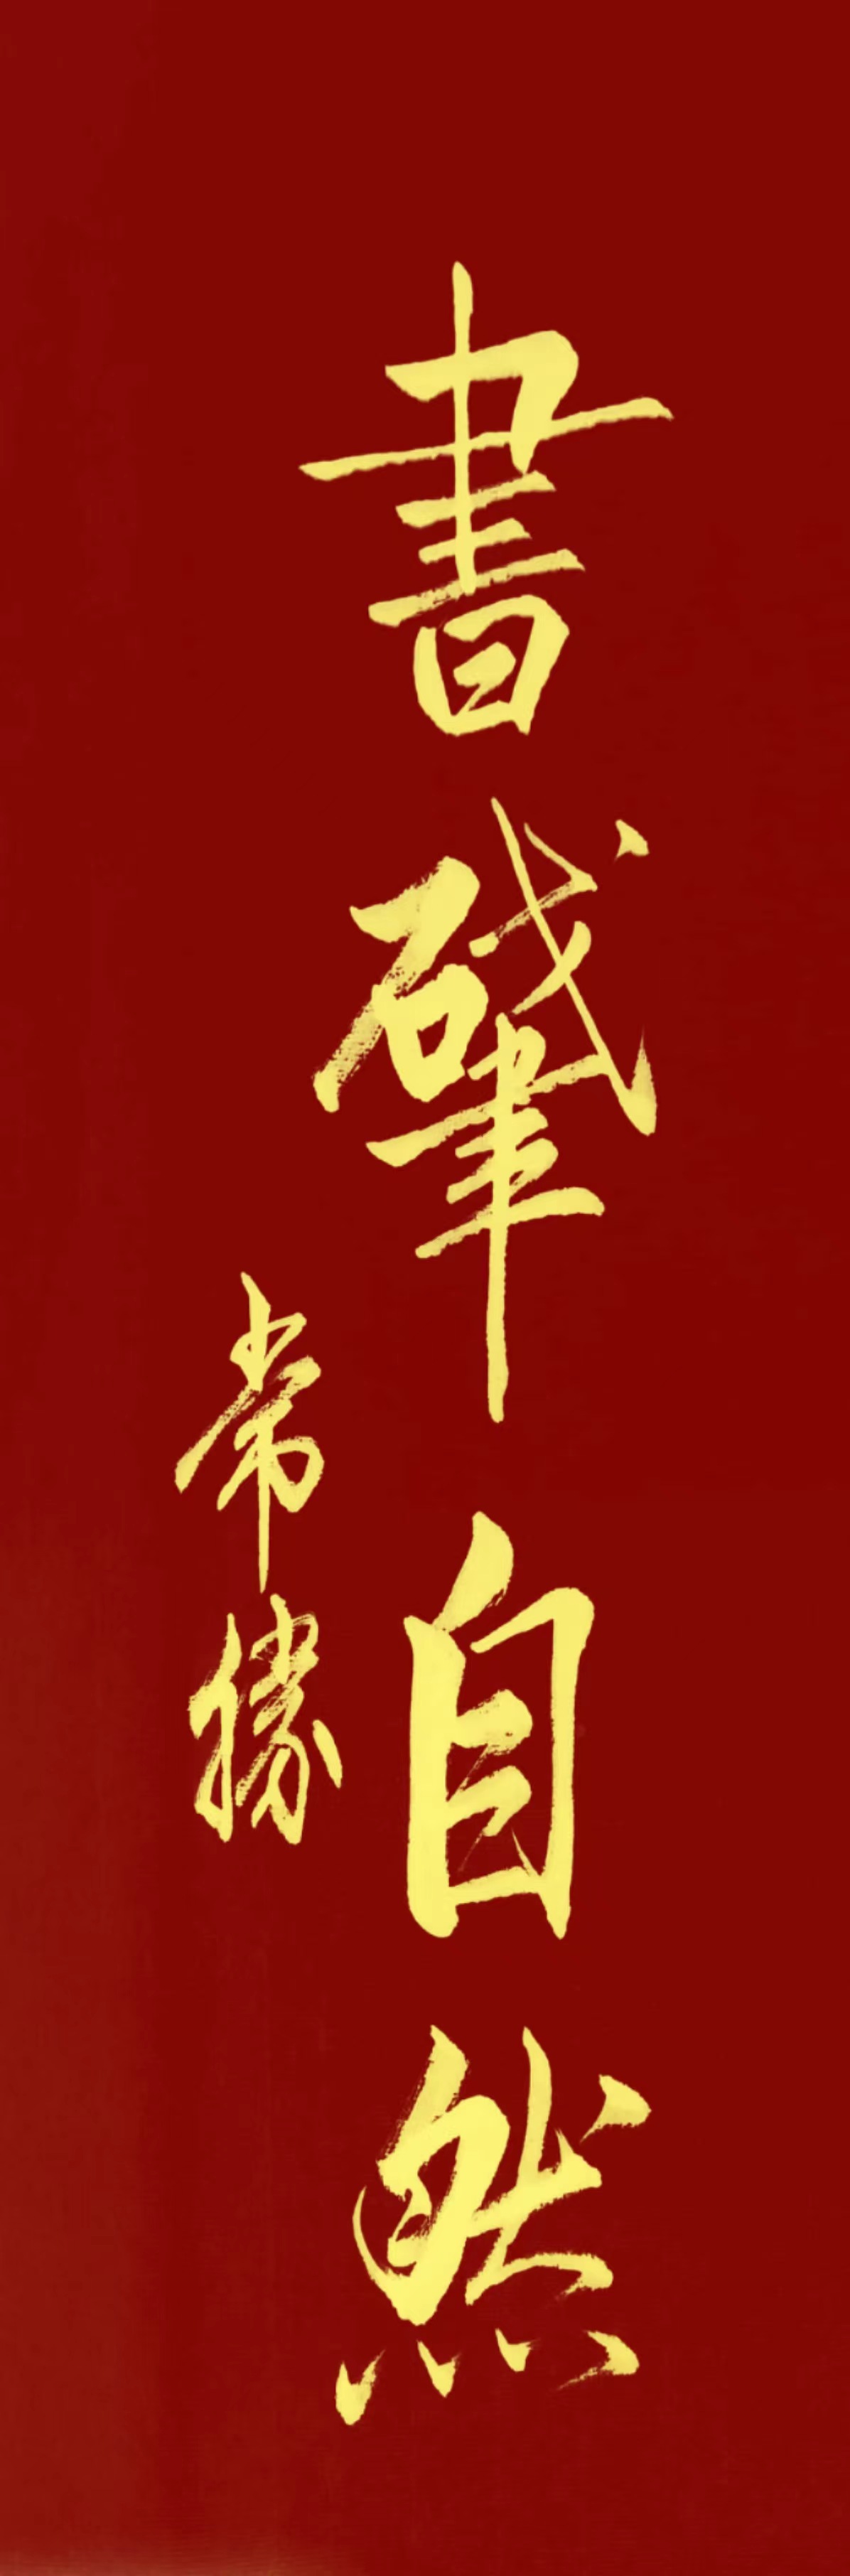 書肇自然
常勝